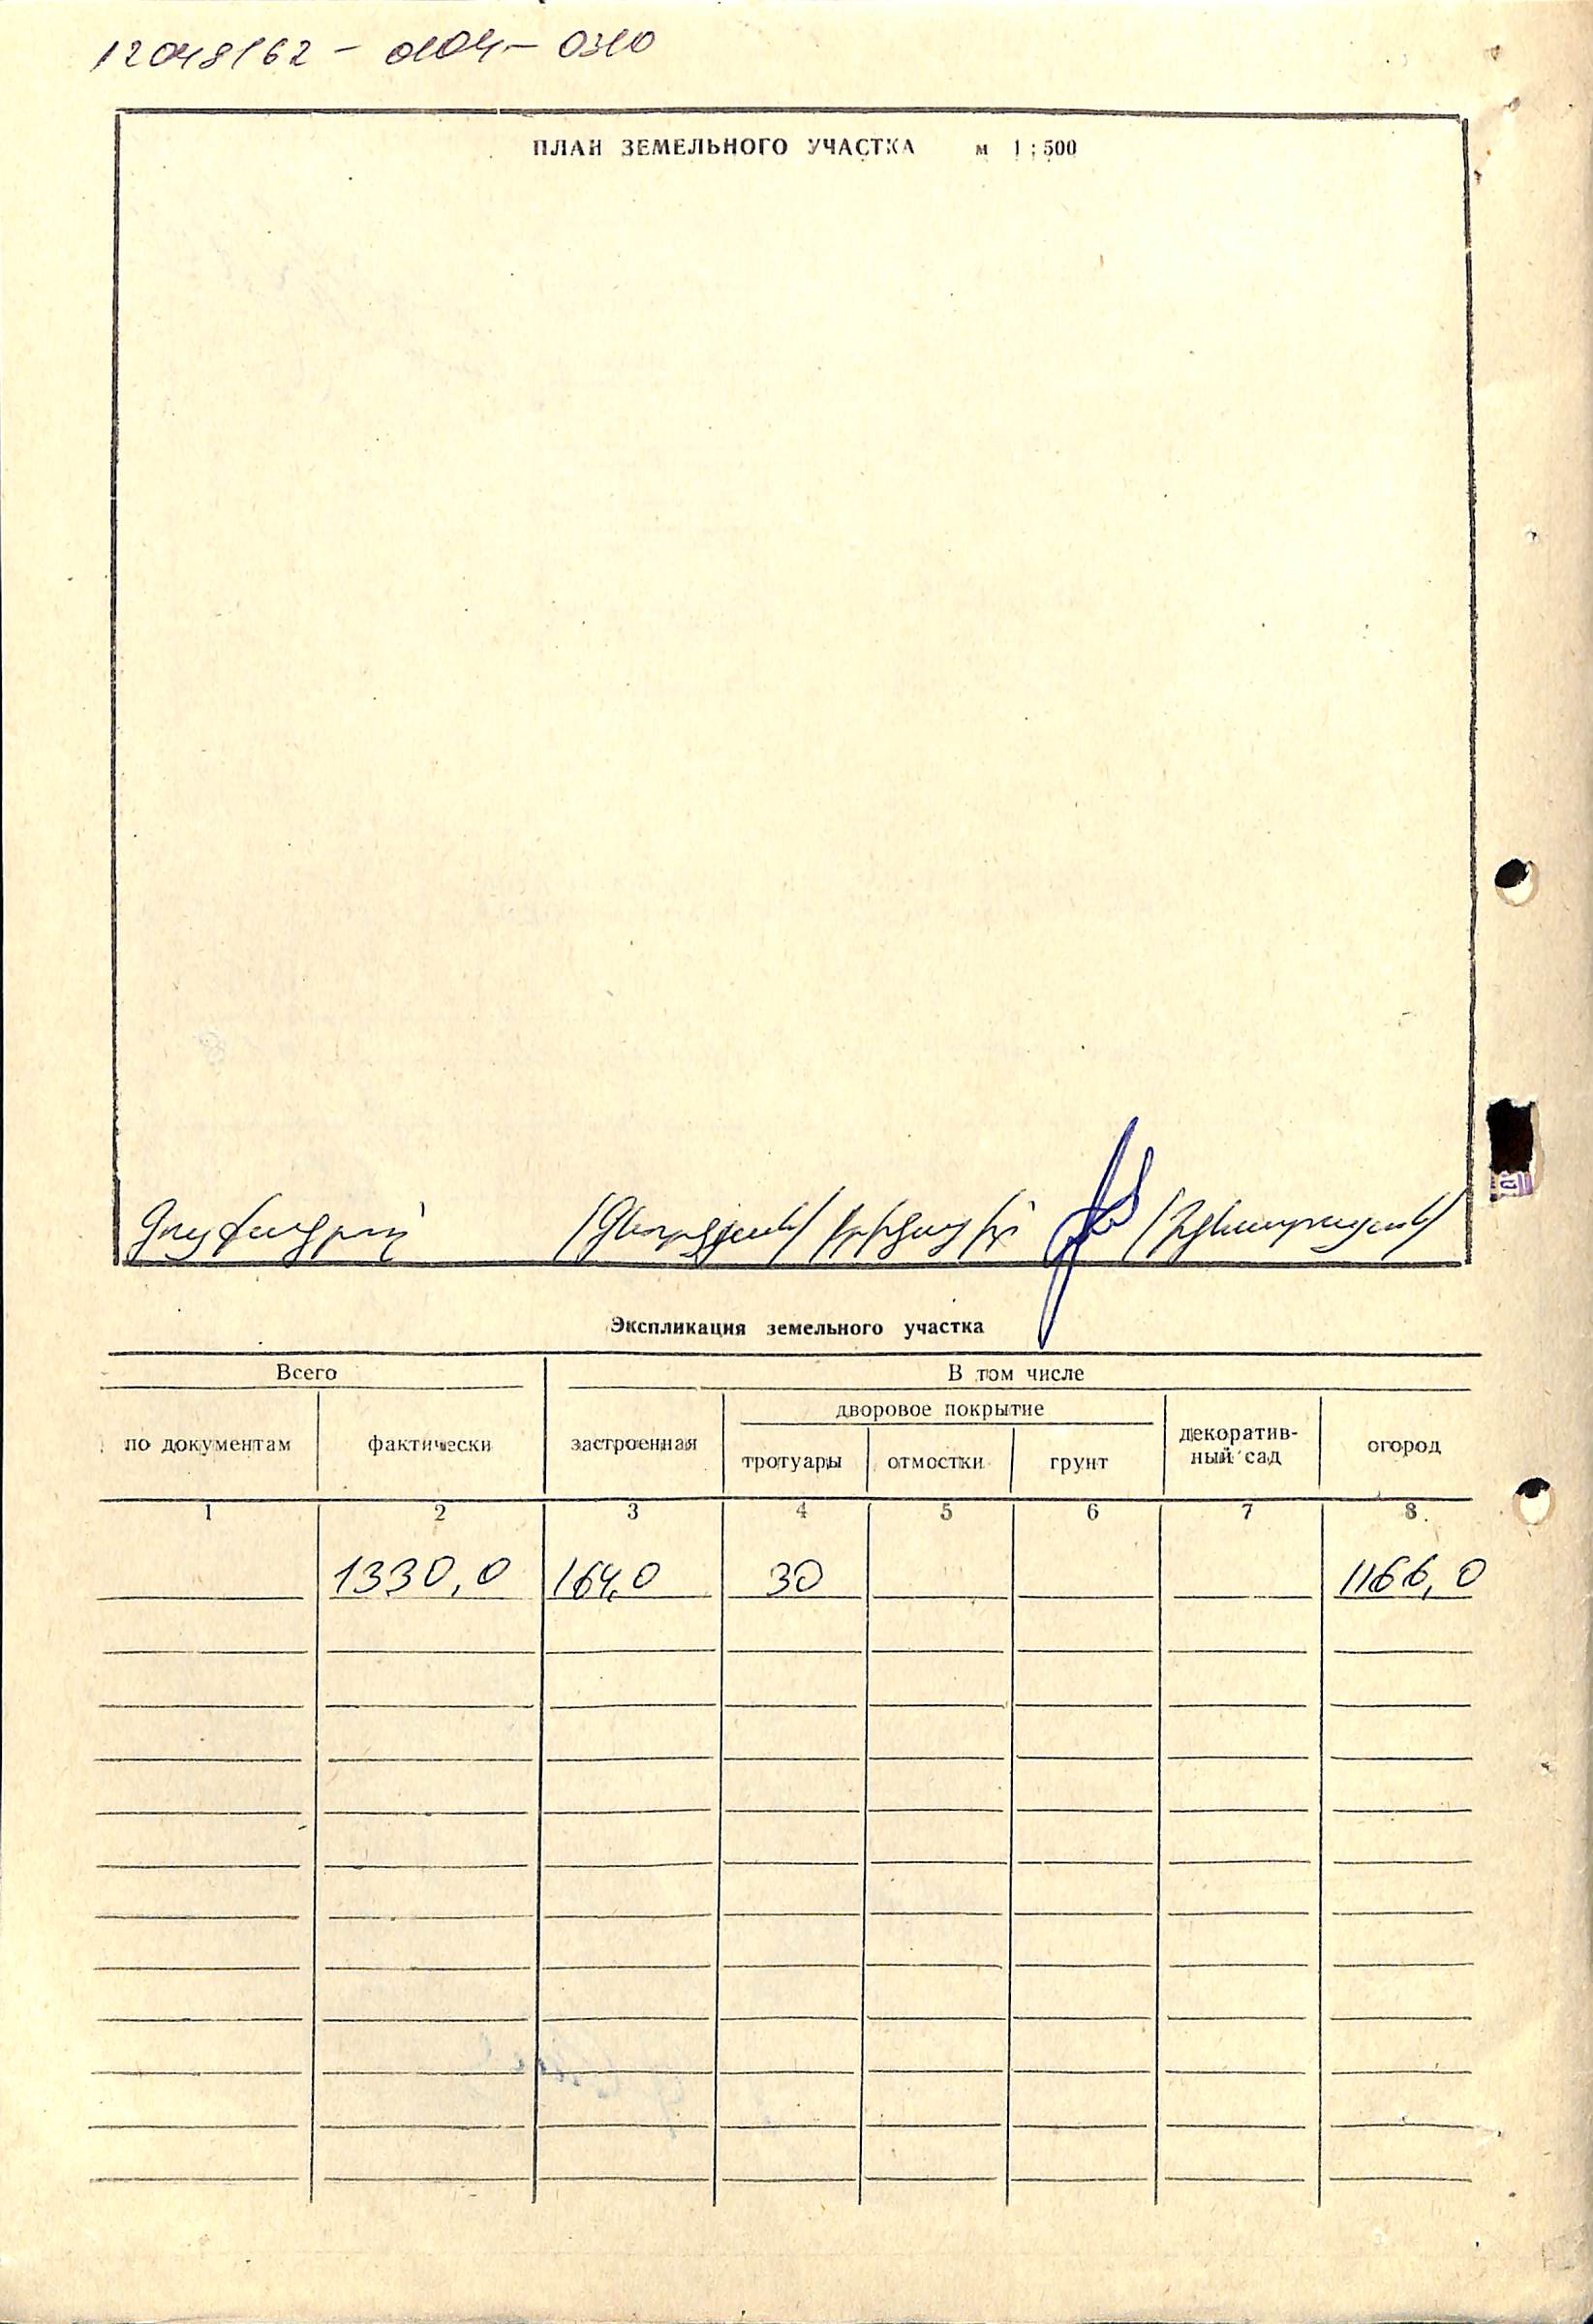 ПЛАН ЗЕМЕЛЬНОГО УЧАСТКА м 1 : 500
Экспликация земельного участка
Всего В том числе
по документам фактически застроенная дворовое покрытие декоратив-ный сад огород
тротуары отмостки грунт
1 2 3 4 5 6 7 8
1330,0 164,0 30 1166,0